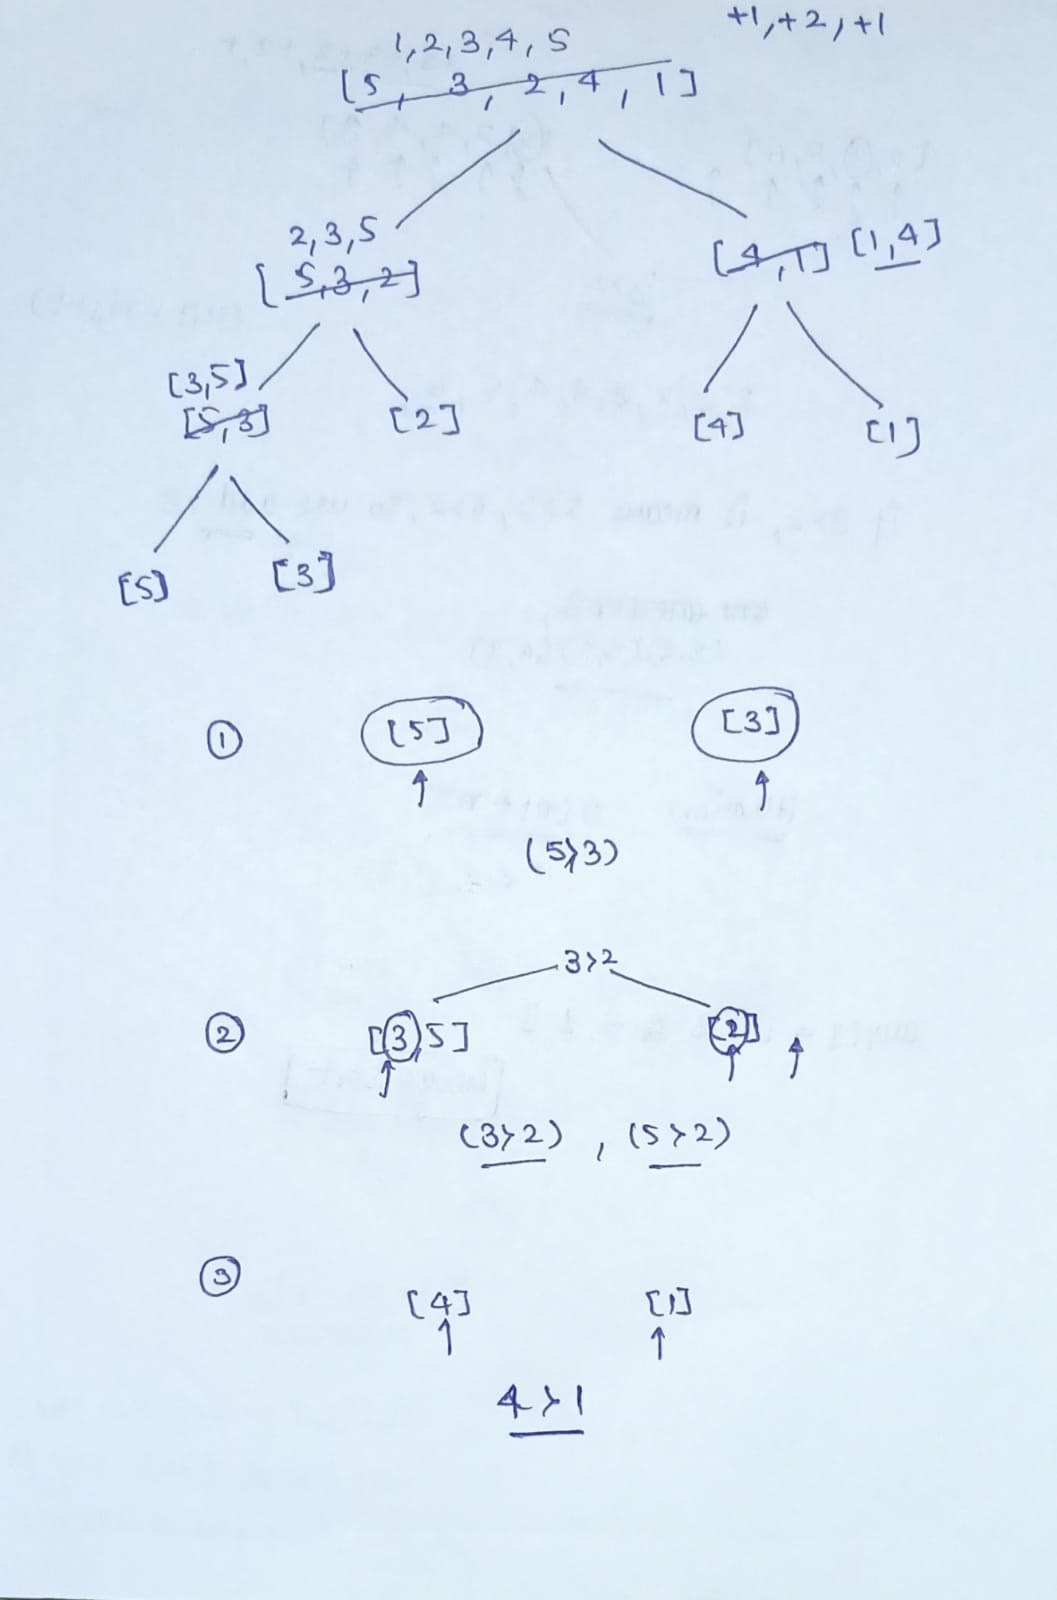 +1,+2,+1
1,2,3,4,5
[5, 3, 2, 4, 1]
2,3,5
[5,3,2]
[4,1] [1,4]
[3,5]
[5,3] [2]
[4] [1]
[5] [3]
① [5] [3]
(5>3)
3>2
② [3,5] [2]
(3>2), (5>2)
③
[4] [1]
4>1